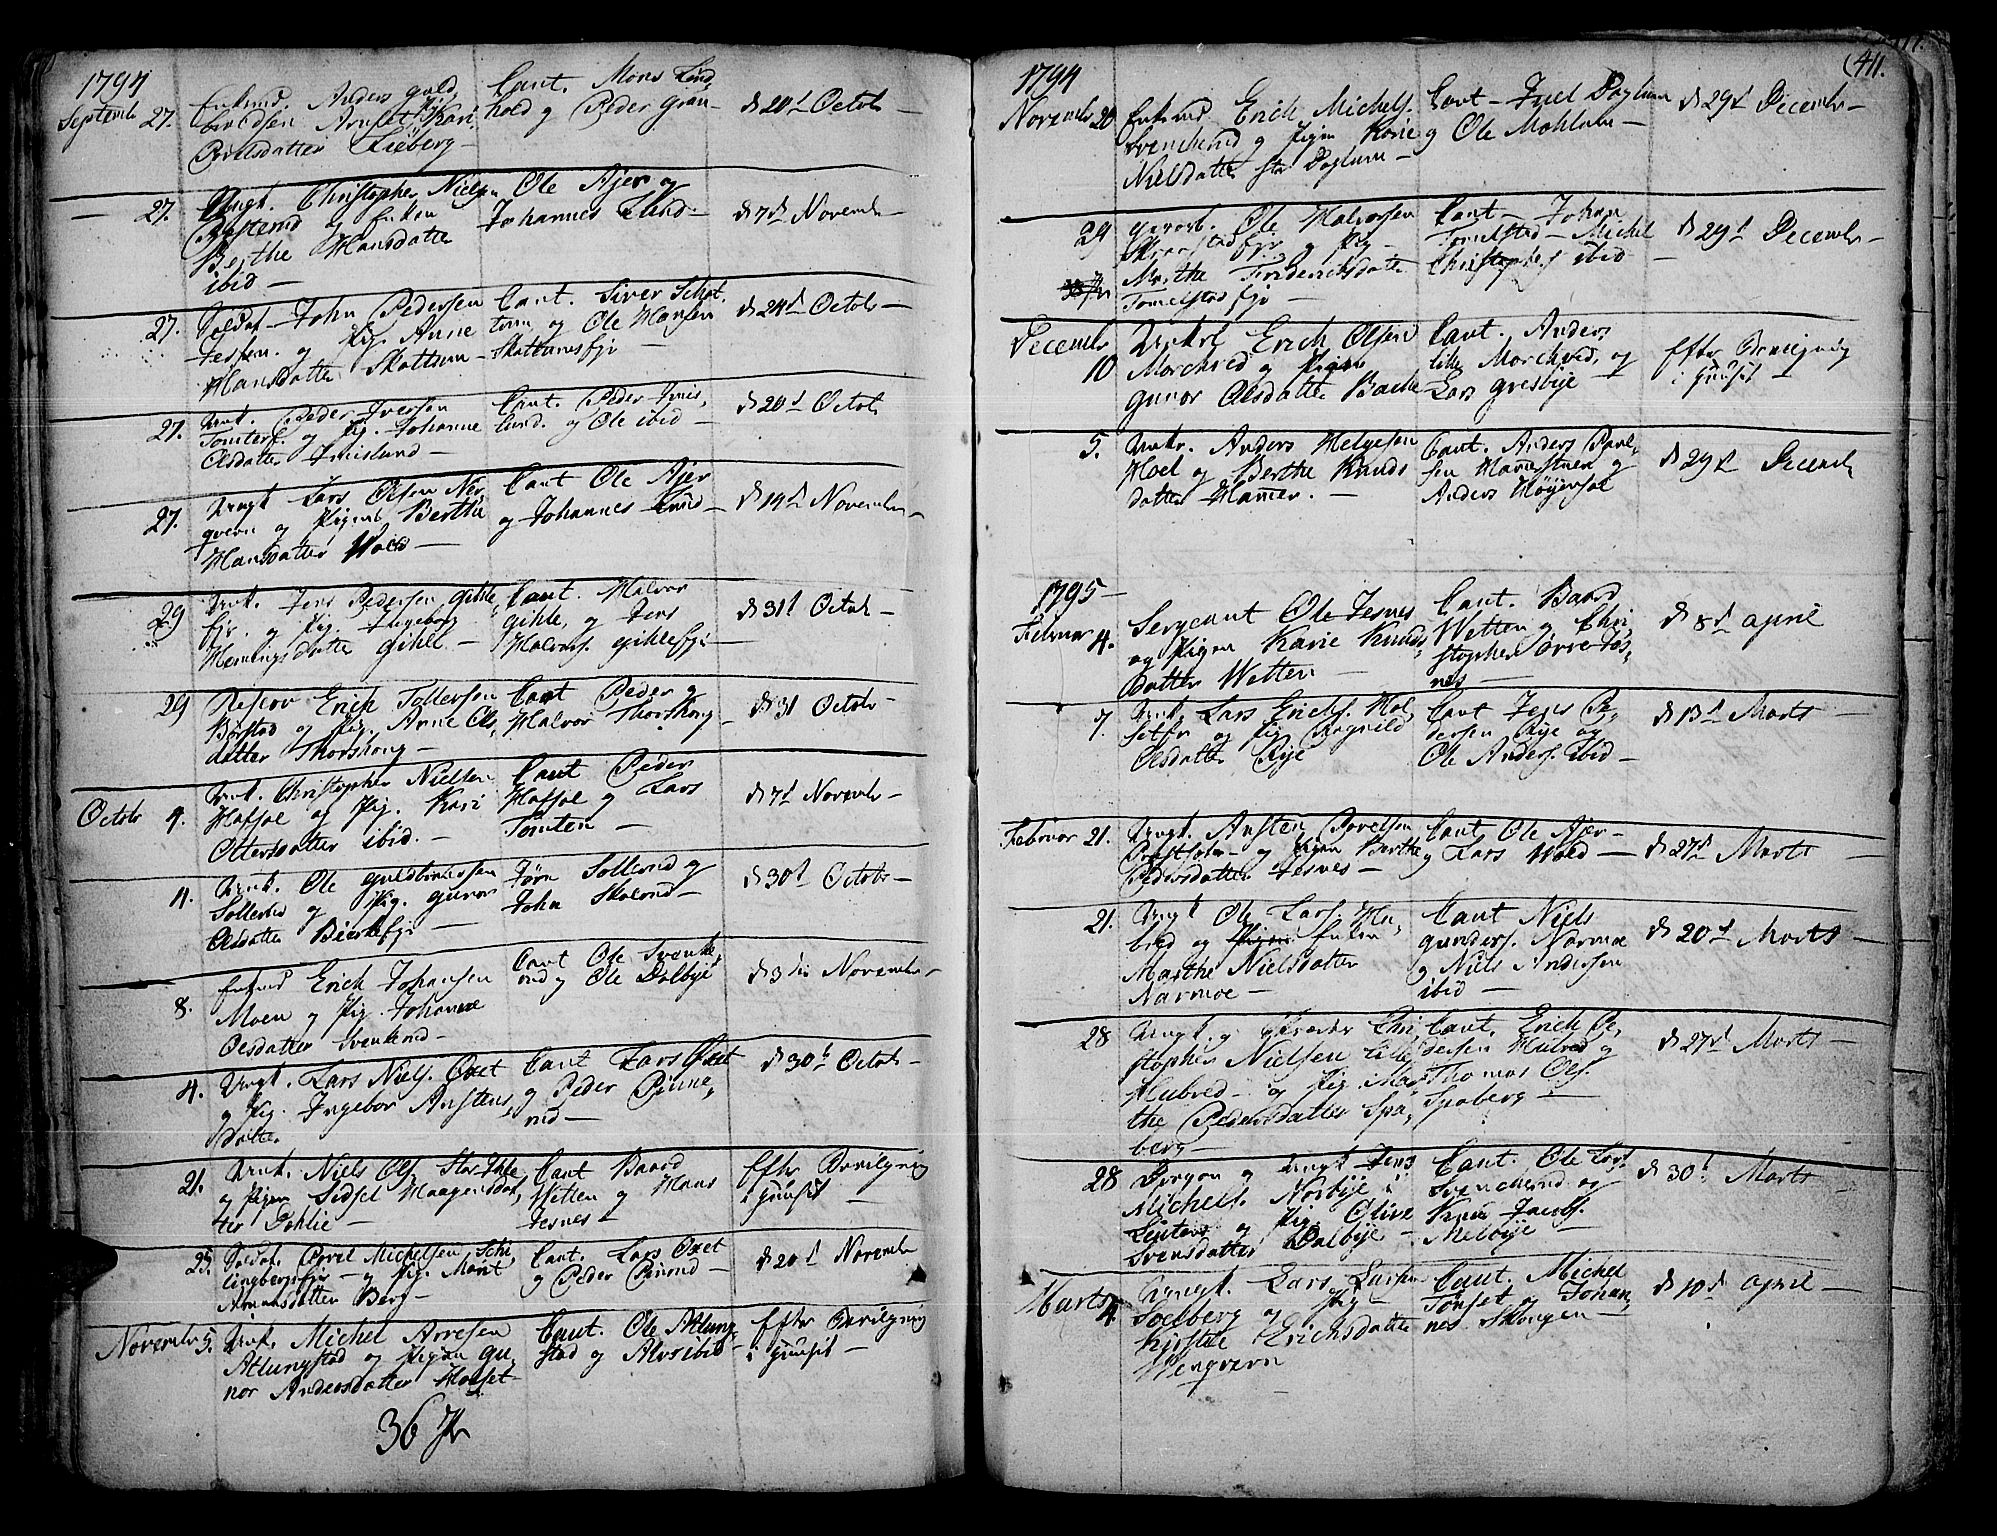 1794
Septembr 27. Enkmd. Anders guld,
brandsen Arnset Kari
Povelsdatter Lieberg —
Caut. Mons Lind,
hold og Peder Gran
d 20d Octobr
— 27. Ungk. Christopher Nielsen
og Enken
Berthe Hansdatter
ibid —
Ole Ajer og
Johannes Lund —
d 7d Novembr —
27. Soldat — John Pedersen
Jessen. og Pig. Anne
Hansdatter Skattum —
Caut. Siver Schat,
tum, og Ole Hansen
Skattumseje —
d 24d Octobr —
27. Unk. Peder Iversen
Tomter. og Pig. Johanne
Olsdatter Imislund —
Caut. Peder Imis,
lund. og Ole ibid —
d 20d Octobr
27. Ungk Lars Olsen Ner,
qvern og Pigen Berthe
Hansdatter Wold —
Caut Ole Ajer
og Johannes Lund —
d 14d Novembr —
29 Unk. Jens Pedersen gihle,
ejr. og Pig. Ingebor
Hemmingsdatter gihle —
Caut. Halvor
gihle, og Jens
Halvors. gihleeje —
d 31d Octobr —
29 Erich Tollersen
Børstad og Pig. Anne Ols,
datter Thorshoug —
Caut Peder og
Halvor Thorshoug —
d 31 Octobr —
Octobr 4. Unk. Christopher Nielsen
Hafsoe og Pig. Kari
Ottersdatter ibid. —
Caut Peder
Hafsoe og Lars
Tomten —
d 7d Novembr —
11. Unk. Ole guldbrandsen
Sollerud og Pig. gunor
Olsdatter Bierkeeje —
Jørn Sollerud og
John Skolerud —
d 30d Octobr —
8. Enkmd Erich Johansen
Moen og Pig. Johanne
Olsdatter Svenkerud —
Caut Ole Svenke,
rud og Ole Dalbye
d 3die Novembr —
4. Ungk. Lars Niels. Oxet
og Pig. Ingebor Anstens,
datter
Caut Lars Oxet
og Peder Pinne,
rud —
d 30d Octobr —
21. Unk. Niels Ols. Stor Ihle
og Pigen Sidsel Haagensdat,
ter Dahlie —
Caut Baard
Wetten og Hans
Jesnes —
Efter Bevilgning
i Huuset —
25. Soldat. Povel Michelsen Schi,
lingbergseje — og Pig. Marit
Amunsdatter Berg —
Caut. Lars Oxet
og Peder Pinerud —
d 20d Novembr
Novembr 5. Unk. Michel Arvesen
Atlungstad og Pigen Gu,
nor Andersdatter Holset —
Caut. Ole Atlung,
stad og Alv ibid —
Efter Bevilgning
i Huuset —
36 Pr
(41.
1794
Novembr 20 Enkmd Erich Michels.
Svenkerud og Pigen Karie
Nielsdatter stor Doglum —
Caut — Juel Doglum
og Ole Mohlum —
d 29d Decembr —
29 Ole Halvorsen
Skramstadeje og Pig —
Marthe Friderichsdatter
Tomelstadeje —
Caut — Johan
Tomelstad — Michel
Christophers ibid —
d 29d Decembr —
Decembr
10 Unkrl Erich Olsen
Morchred og Pigen
gunor Olsdatter Bache
Caut. Anders
lille Morchred, og
Lars gresbye
Efter Bevilgning
i Huuset —
5. Unkr. Anders Helgesen
Hoel og Berthe Knuds
datter Hamer. —
Caut. Anders Povel,
sen Hamerstuen og
Anders Høyensoe
d 29d Decembr
1795 —
Februar 4. Sergeant Ole Jesnes
og Pigen Karie Knuds,
datter Wetten —
Caut. Baard
Wetten og Chri,
stopher øvre Jes,
nes —
d 8d april
7. Unk. Lars Erichs. Hol,
seter og Pig Rognild
Olsdatter Rye
Caut Jens Pe,
dersen Rye og
Ole Anders. ibid —
d 13d Marts —
Februar 21. Ungk. Ansten Povelsen
og Pigen Berthe
Pedersdatter Jesnes —
Caut Ole Ajer —
og Lars Wold —
d 27d Marts —
21. Ungk Ole Lars. Hu,
bred og Enken
Marthe Nielsdatter
Narmoe —
Caut Niels
gunders. Narmoe
og Niels Andersen
ibid —
d 20d Marts —
28 Ungk og Chri,
stopher Nielsen Lille
Hubred — og Pig. Mar,
the Pedersdatter Spa,
berg —
Caut, Erich Pe,
dersen Hubred og
Thomas Ols.
Spaberg —
d 27d Marts —
28 Dragon og Ungk Jens
Michels. Norbye i
Leuten og Pig. Olive
Svensdatter Dalbye —
Caut. Ole Lars.
Svenkerud og
Knud Jacobs.
Melbye —
d 30d Marts —
Marts 4. Ungk. Lars Larsen
Soelberg og Pig —
Kirstie Erichsdatter
Wengvern
Caut, Michel
Tønset og Johan,
nes Skougen —
d 10d april —